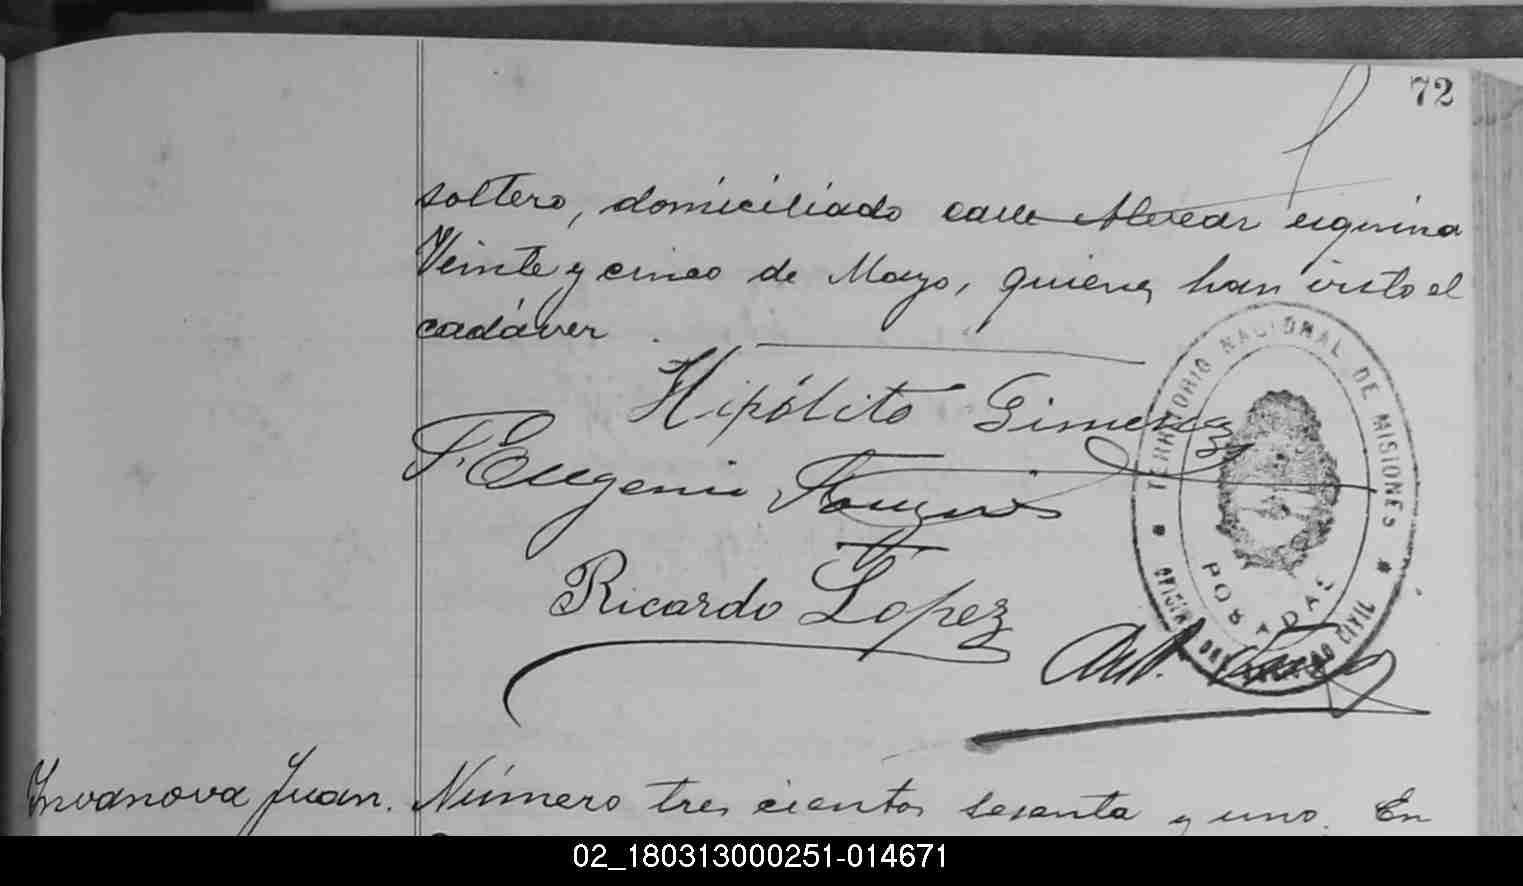 72
soltero, domiciliado calle Alvear esquina
Veinte y cinco de Mayo, quienes han visto el
cadáver.
Hipólito Gimenez
F. Eugenio
Ricardo López
TERRITORIO NACIONAL DE MISIONES
POSADAS
OFICINA DEL REGISTRO CIVIL
Invanova Juan. Número trescientos sesenta y uno. En
02_180313000251-014671